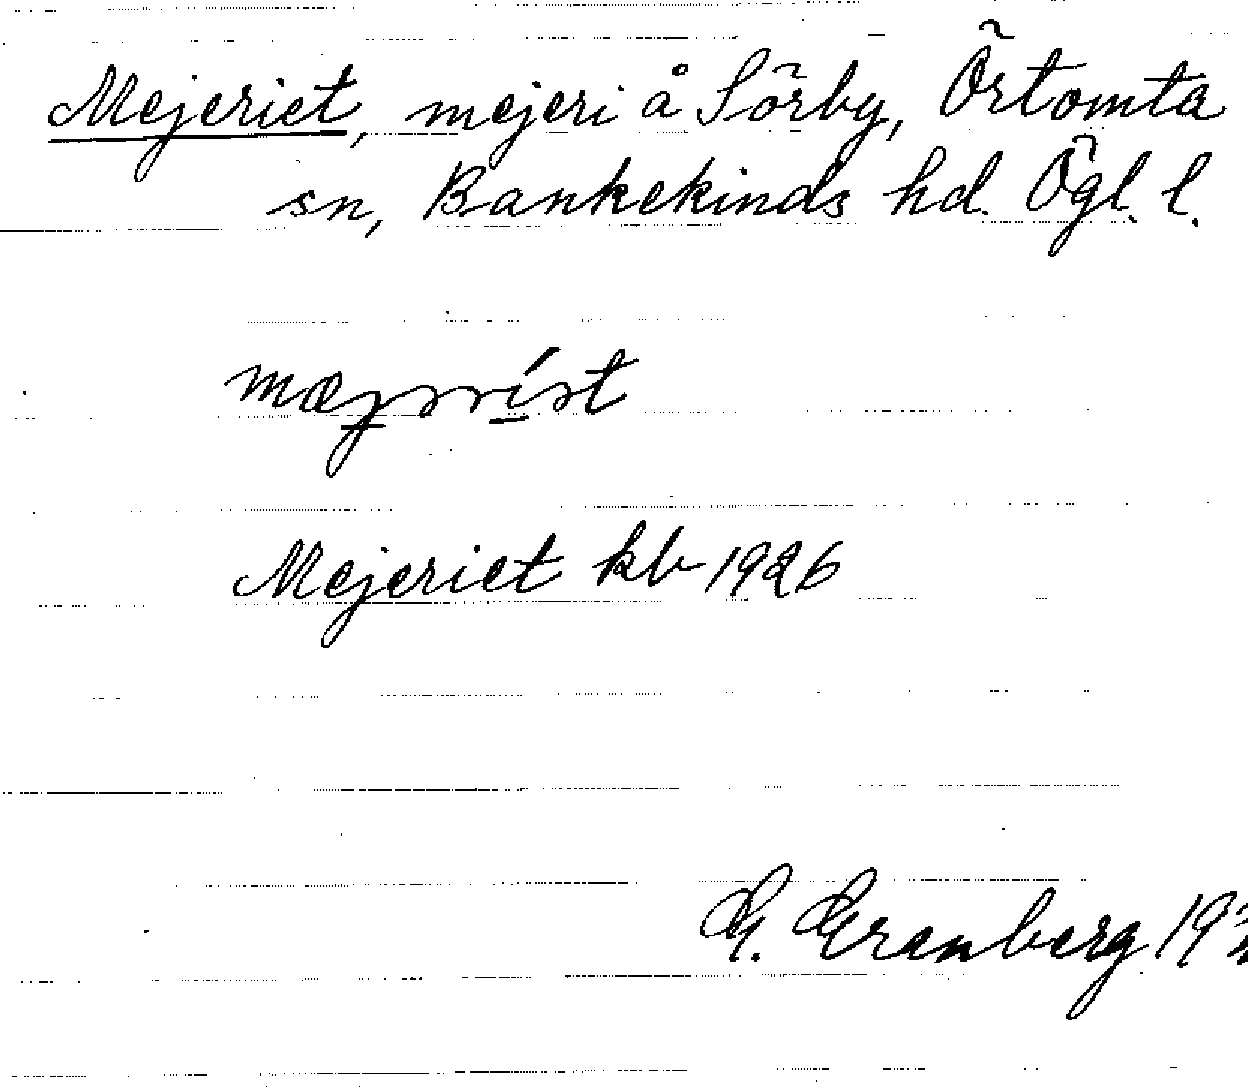 Mejeriet, mejeri å Sörby, Örtomta
sn, Bankekinds hd. Ögl. l.
Mejeriet kb 1926
G. Granberg 19